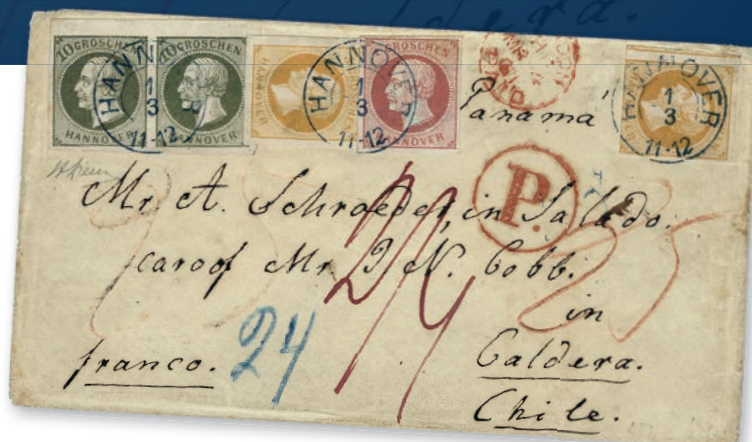 dera.
10 GROSCHEN
HANNOVER
10 GROSCHEN
HANNOVER
HANNOVER
HANNOVER
HANNOVER
1
3
11-12
HANNOVER
1
3
11-12
HANNOVER
1
3
11-12
PAID
Panamá
P.
Mr. A. Schroeder, in Salado.
careof Mr. J. N. Cobb.
in
franco.
24
35
Caldera.
Chile.